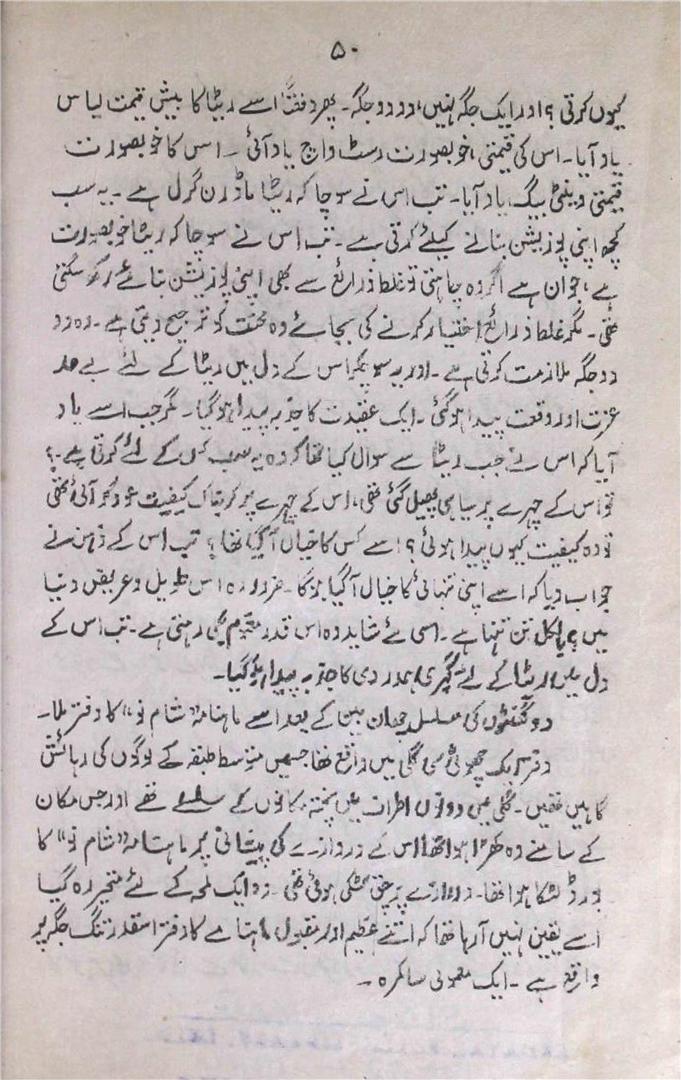 ۵۰
کیوں کرتی ؟ اور ایک جگہ نہیں، دو دو جگہ۔ پھر دفعتاً اسے ریٹا کا بیش قیمت لباس
یاد آیا۔ اس کی قیمتی، خوبصورت رسٹ واچ یاد آئی ۔ اس کا خوبصورت
قیمتی وینٹی بیگ یاد آیا۔ تب اس نے سوچا کہ ریٹا ماڈرن گرل ہے ۔ یہ سب
کچھ اپنی پوزیشن بنانے کیلئے کرتی ہے ۔ تب اس نے سوچا کہ ریٹا خوبصورت
ہے، جوان ہے اگر وہ چاہتی تو غلط ذرائع سے بھی اپنی پوزیشن بنائے رکھ سکتی
تھی ۔ مگر غلط ذرائع اختیار کرنے کی بجائے وہ محنت کو ترجیح دیتی ہے ۔ وہ دو
دو جگہ ملازمت کرتی ہے ۔ اور یہ سوچکر اس کے دل میں ریٹا کے لئے بے حد
عزت اور وقعت پیدا ہو گئی ۔ ایک عقیدت کا جذبہ پیدا ہو گیا ۔ مگر جب اسے یاد
آیا کہ اس نے جب ریٹا سے سوال کیا تھا کہ وہ یہ سب کس کے لئے کرتی ہے ۔؟
تو اس کے چہرے پر سیاہی پھیل گئی تھی، اس کے چہرے پر کربناک کیفیت عود کر آئی تھی
تو وہ کیفیت کیوں پیدا ہوئی ؟ اسے کس کا خیال آگیا تھا ؟ تب اس کے ذہن نے
جواب دیا کہ اسے اپنی تنہائی کا خیال آگیا ہوگا ۔ ضرور وہ اس طویل و عریض دنیا
میں بالکل تن تنہا ہے ۔ اسی لئے شاید وہ اس قدر مغموم بھی رہتی ہے ۔ تب اس کے
دل میں ریٹا کے لئے گہری ہمدردی کا جذبہ پیدا ہو گیا ۔
دو گھنٹوں کی مسلسل چھان بین کے بعد اسے ماہنامہ "شام نو" کا دفتر ملا ۔
دفتر ایک چھوٹی سی گلی میں واقع تھا جسمیں متوسط طبقہ کے لوگوں کی رہائش
گاہیں تھیں ۔ گلی میں دونوں اطراف میں پختہ مکانوں کے سلسلے تھے اور جس مکان
کے سامنے وہ کھڑا ہوا تھا اس کے دروازے کی پیشانی پر ماہنامہ "شام نو" کا
بورڈ لٹکا ہوا تھا ۔ دروازے پر چق لٹکی ہوئی تھی ۔ وہ ایک لمحہ کے لئے متحیر رہ گیا
اسے یقین نہیں آرہا تھا کہ اتنے عظیم اور مقبول ماہنامے کا دفتر اسقدر تنگ جگہ پر
واقع ہے ۔ ایک معمولی سا کمرہ ۔